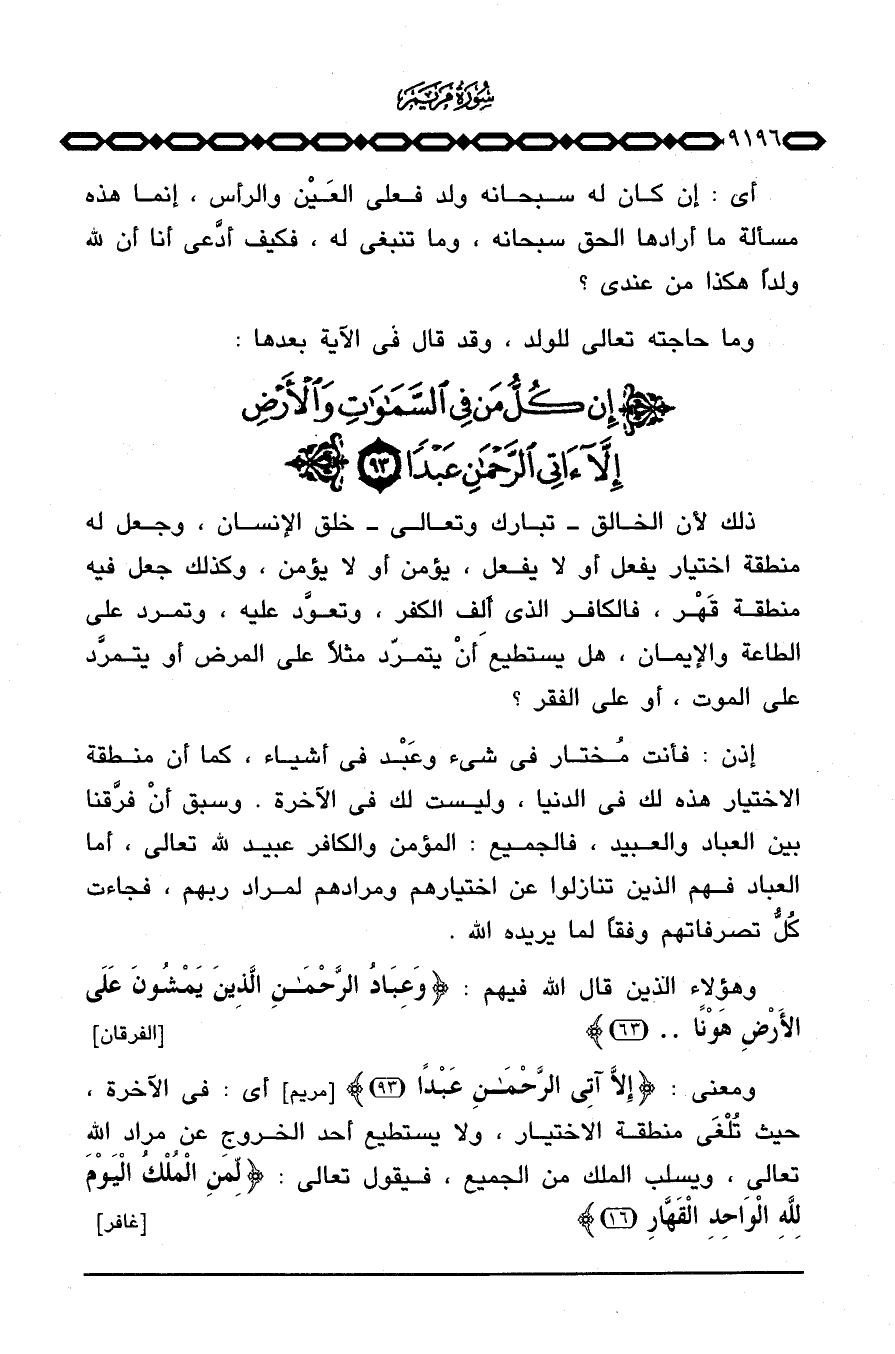 سُورَةُ مَرْيَم
٩١٩٦
أى : إن كــان له سـبـحــانه ولد فـعلى العَـيْن والرأس ، إنمـا هذه
مسـألة ما أرادها الحق سبحانه ، وما تنبغى له ، فكيف أدَّعى أنا أن لله
ولداً هكذا من عندى ؟
وما حاجته تعالى للولد ، وقد قال فى الآية بعدها :
﴿إِن كُلُّ مَن فِى ٱلسَّمَٰوَٰتِ وَٱلْأَرْضِ
إِلَّآ ءَاتِى ٱلرَّحْمَٰنِ عَبْدًا ٩٣﴾
ذلك لأن الخـالق - تبـارك وتعـالـى - خلق الإنسـان ، وجـعل له
منطقة اختيار يفعل أو لا يفـعل ، يؤمن أو لا يؤمن ، وكذلك جعل فيه
منطقـة قَهْر ، فالكافـر الذى ألف الكفر ، وتعـوَّد عليه ، وتمـرد على
الطاعة والإيمـان ، هل يستطيع أنْ يتمـرّد مثلاً على المرض أو يتـمرَّد
على الموت ، أو على الفقر ؟
إذن : فأنت مُختـار فى شىء وعَبْـد فى أشيـاء ، كما أن منـطقة
الاختيار هذه لك فى الدنيا ، وليـست لك فى الآخرة . وسبق أنْ فرَّقنا
بين العباد والعـبيد ، فالجمـيع : المؤمن والكافر عبيـد لله تعالى ، أما
العباد فـهم الذين تنازلوا عن اختيارهم ومرادهم لمـراد ربهم ، فـجاءت
كُلُّ تصرفاتهم وفقاً لما يريده الله .
وهؤلاء الذين قال الله فيهم : ﴿وَعِبَادُ الرَّحْمَـٰنِ الَّذِينَ يَمْشُونَ عَلَى
الأَرْضِ هَوْنًا .. (٦٣)﴾ [الفرقان]
ومعنى : ﴿إِلاَّ آتِى الرَّحْمَـٰنِ عَبْدًا (٩٣)﴾ [مريم] أى : فى الآخرة ،
حيث تُلْغَى منطقـة الاختيـار ، ولا يستطيع أحد الخـروج عن مراد الله
تعالى ، ويسلب الملك من الجميع ، فـيقول تعالى : ﴿لِّمَنِ الْمُلْكُ الْيَوْمَ
لِلَّهِ الْوَاحِدِ الْقَهَّارِ (١٦)﴾ [غافر]